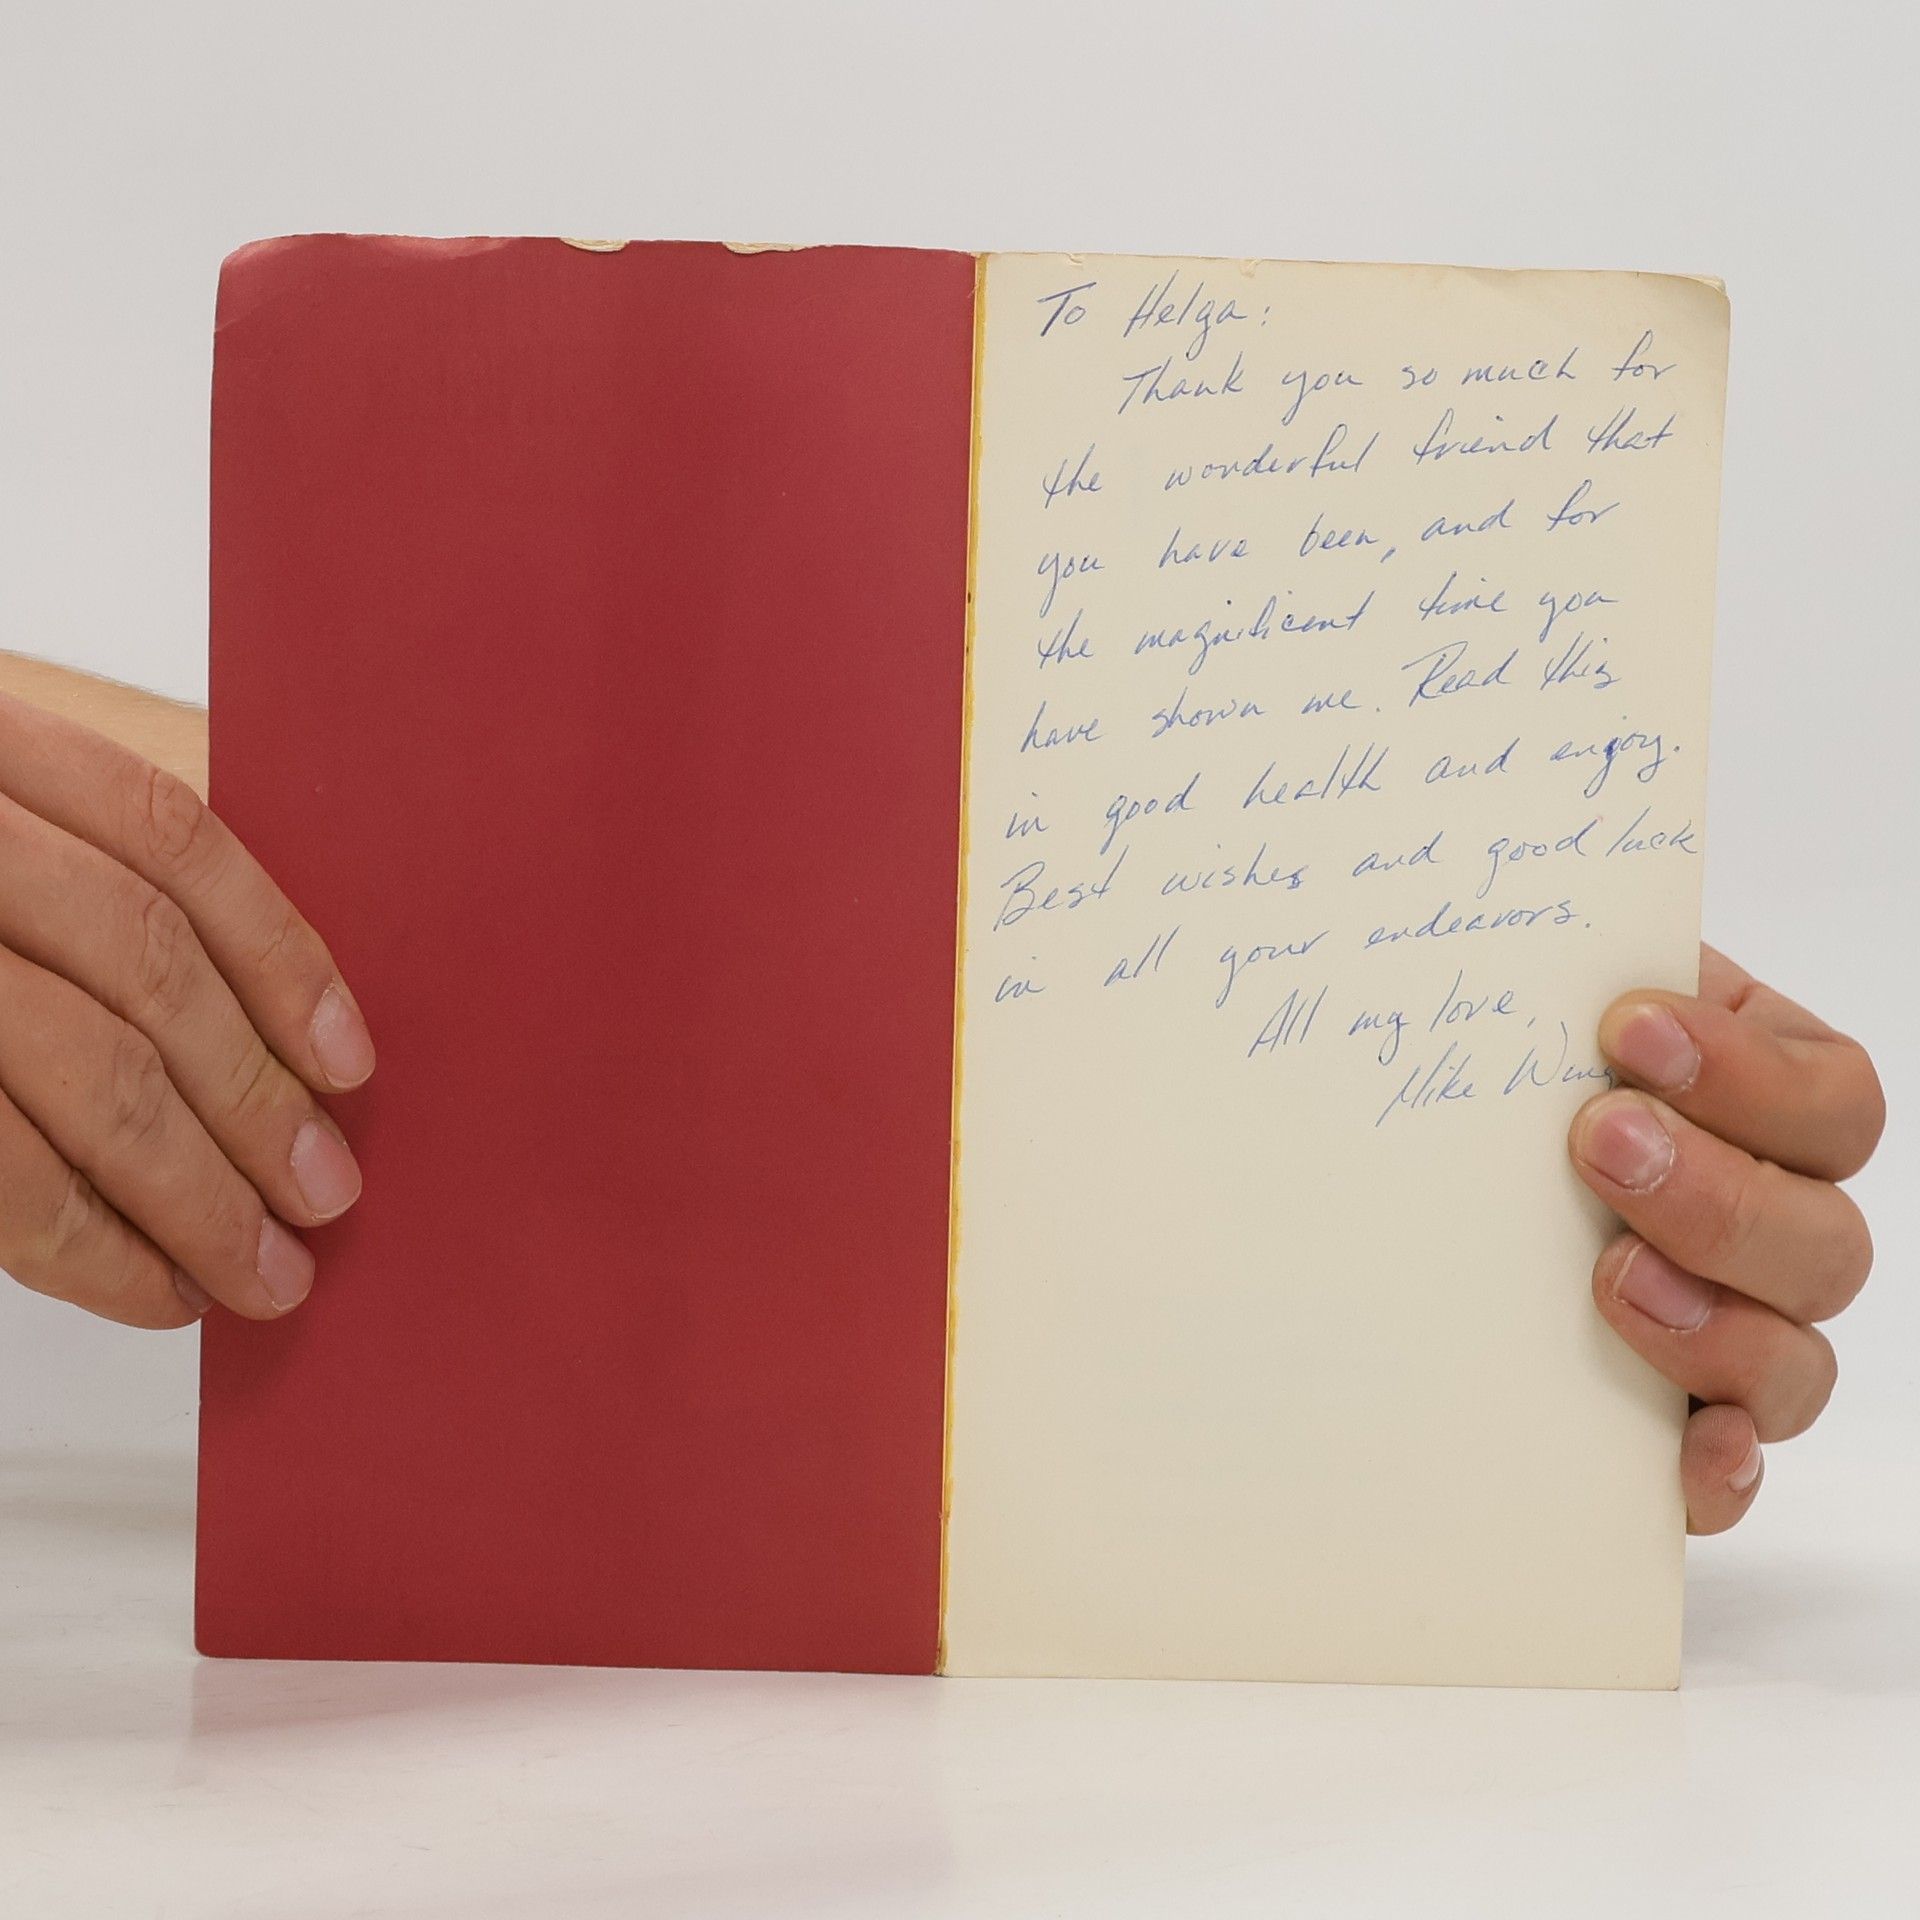 To Helga:
Thank you so much for
the wonderful friend that
you have been, and for
the magnificent time you
have shown me. Read this
in good health and enjoy.
Best wishes and good luck
in all your endeavors.
All my love,
Mike